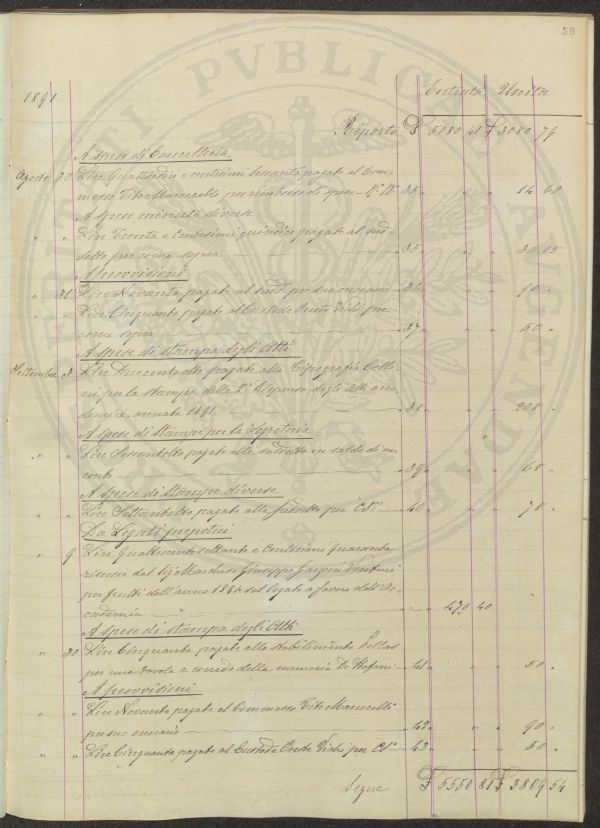 59
1891
Entrata Uscita
Riporto £ 5080 41 £ 3080 79
A spese di Cancelleria
Agosto 20 Lire Quattordici e centesimi sessanta pagate al Com-
messo Tito Marucelli, per rimborso di spese 35 " " " 14 60
A spese minute diverse
" " Lire Trenta e Centesimi quindici pagate al sud-
detto per come sopra 35 " " " 30 15
A provvisioni
" 31 Lire Novanta pagate al sudd° per suo onorario 36 " " " 90 "
" " Lire Cinquanta pagate al Custode Oreste Vichi per
come sopra 37 " " " 50 "
A spese di stampa degli Atti
Settembre 3 Lire Duecento otto pagate alla Tipografia Celli-
ni, per la stampa della 2ª Dispensa degli Atti acca-
demici, annata 1891 38 " " " 208 "
A spese di Stampe per la Segreteria
" " Lire Sessantotto pagate alla suddetta in saldo di un
conto 39 " " " 68 "
A spese di Stampe diverse
" " Lire Settantotto pagate alla suddetta per C.S. 40 " " " 78 "
Da Legati perpetui
" 9 Lire Quattrocento settanta e Centesimi Quaranta
riscosse dal Sig. Marchese Giuseppe Garzoni Venturi
per frutti dell'anno 1890 sul legato a favore dell'Ac-
cademia " 470 40 " "
A spese di stampa degli Atti
" 30 Lire Cinquanta pagate allo Stabilimento Pellas
per una tavola a corredo della memoria De Stefani 41 " " " 50 "
A provvisioni
" " Lire Novanta pagate al Commesso Tito Marucelli
per suo onorario 42 " " " 90 "
" " Lire Cinquanta pagate al Custode Oreste Vichi per C.S. 43 " " " 50 "
Segue £ 5550 81 £ 3809 54
PUBLICAE